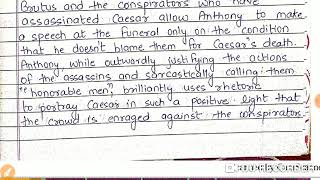 Brutus and the conspirators who have
assassinated Caesar allow Anthony to make
a speech at the funeral only on the condition
that he doesn't blame them for Caesar's death.
Anthony, while outwordly justifying the actions
of the assassins and sarcastically calling them
"honorable men", brilliantly uses rhetoric
to portray Caesar in such a positive light that
the crowd is enraged against the conspirators.